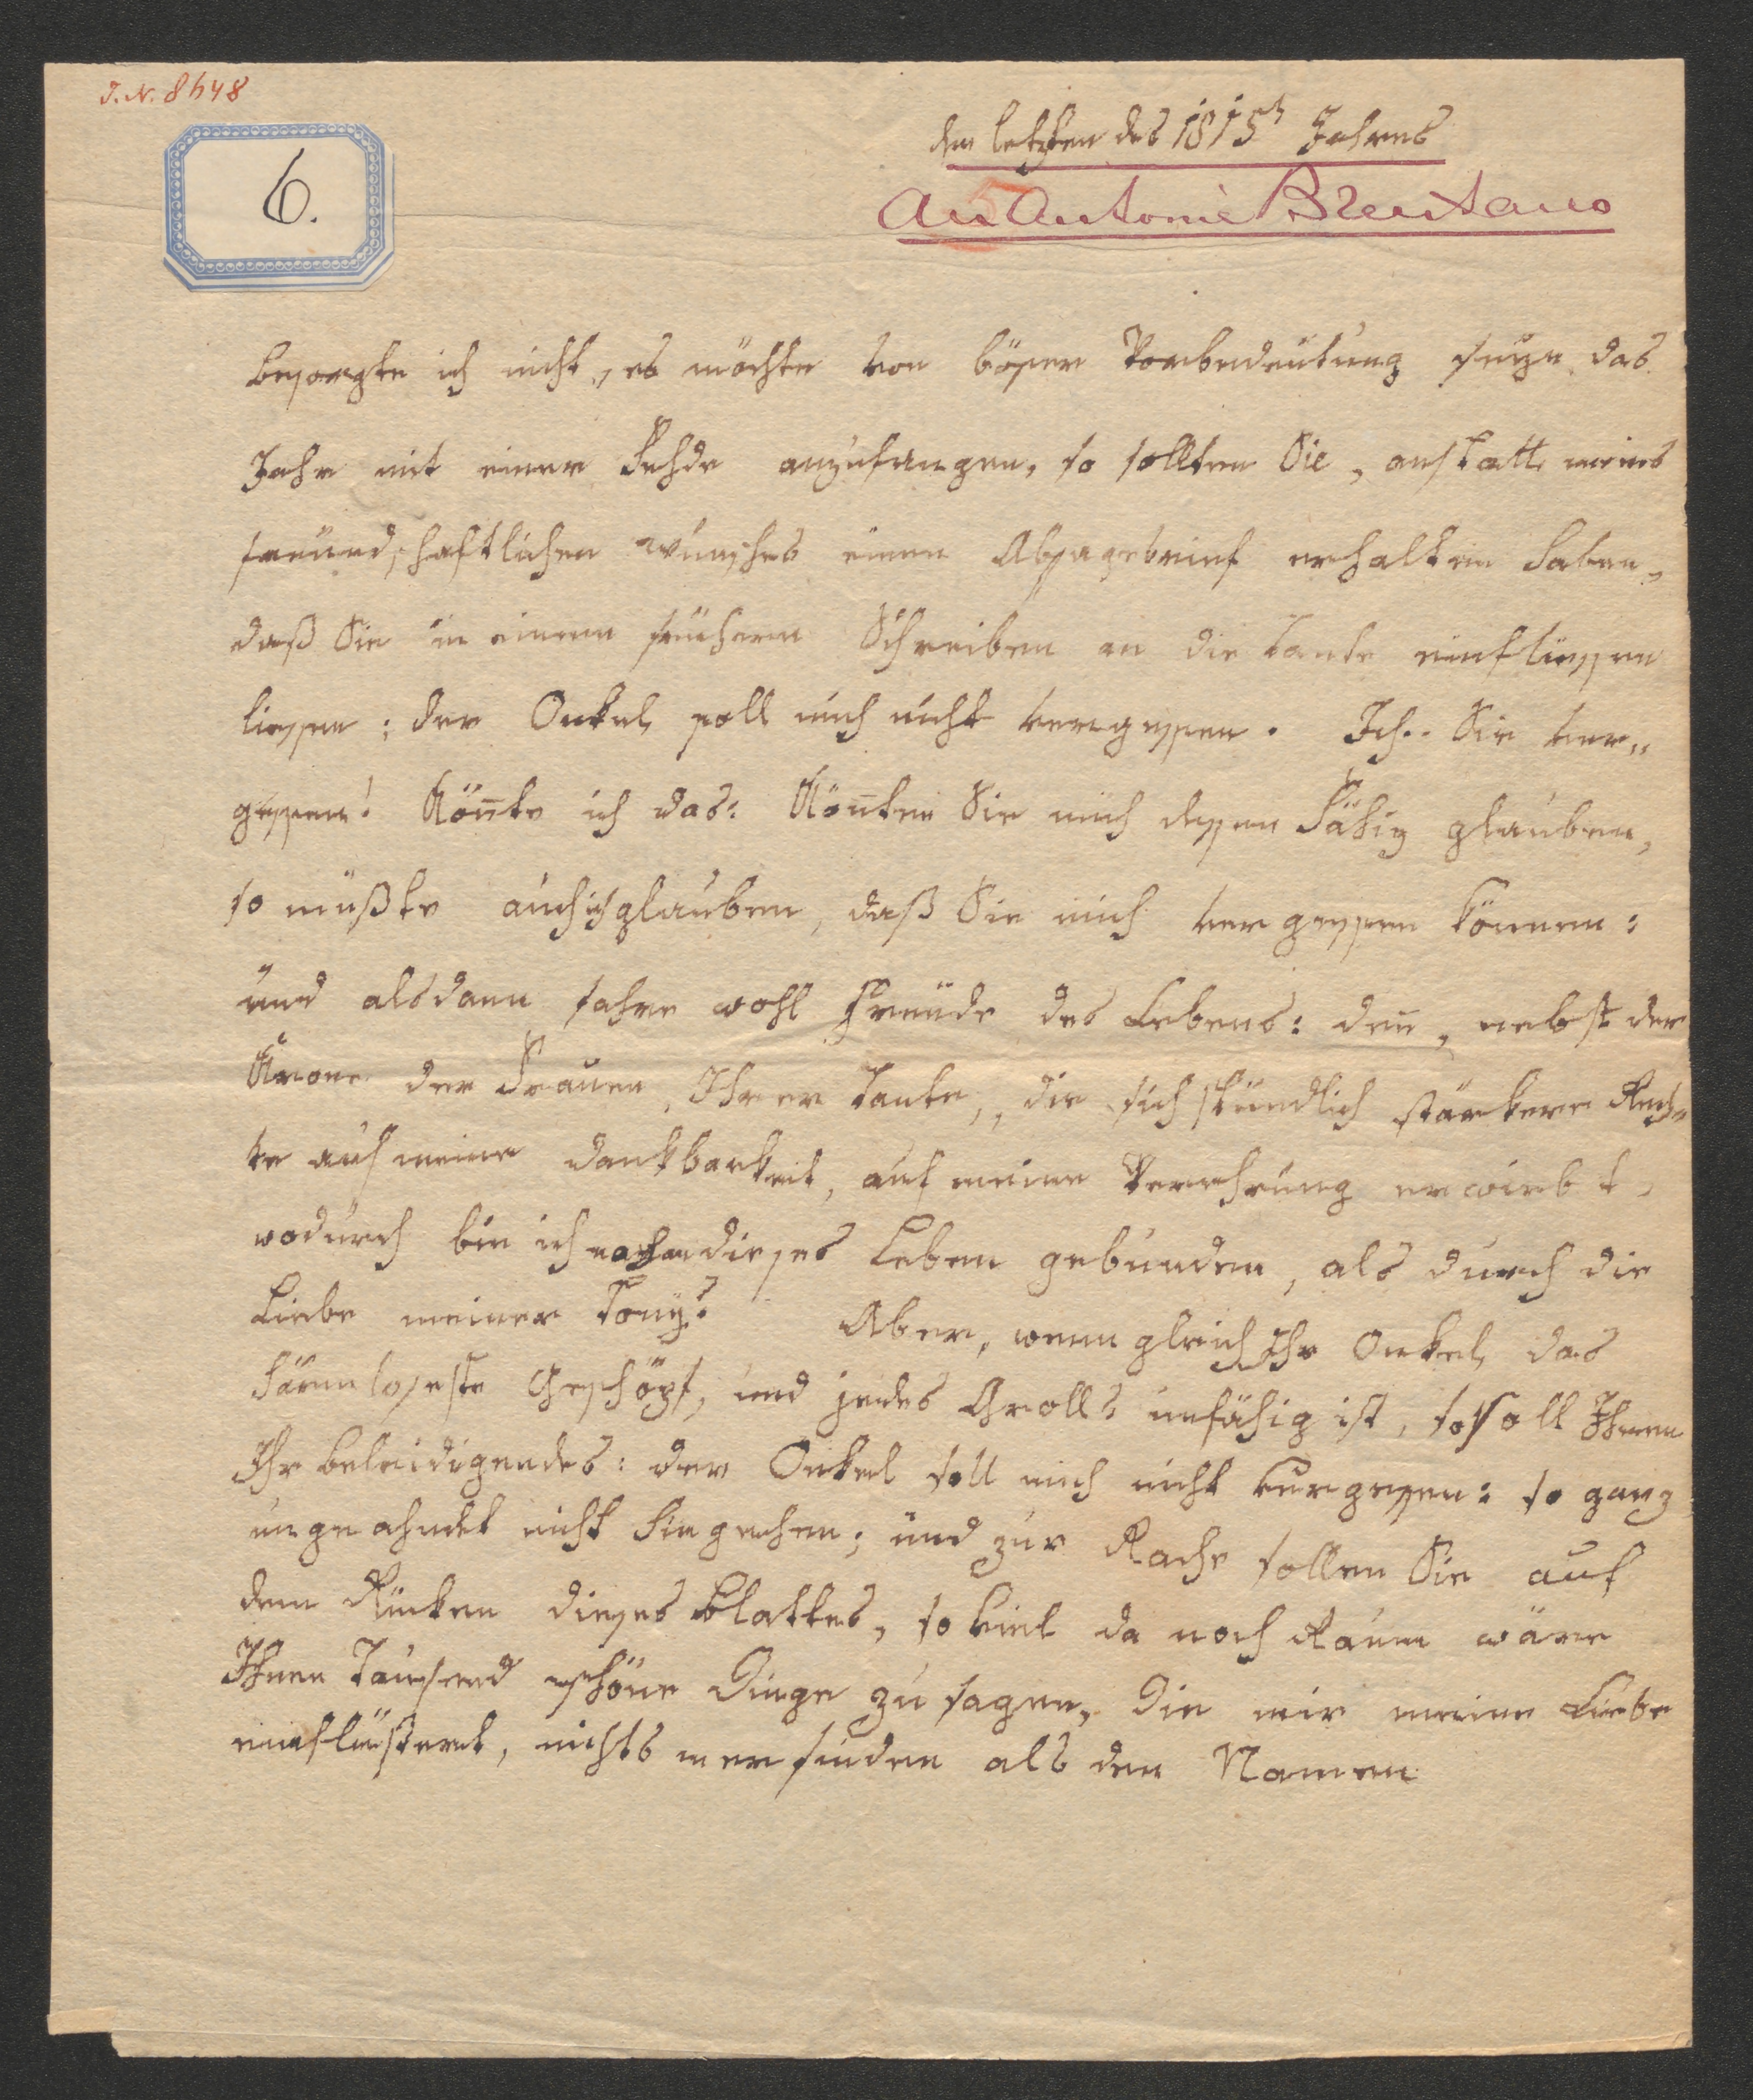 J. N. 8648
6.
den letzten des 1815t Jahres
An Antonie Brentano
5
Besorgte ich nicht, es möchte von böser Vorbedeutung seyn das
Jahr mit einer Fehde anzufangen, so sollten Sie, anstatt meines
freundschaftlichen wunsches einen Absagebrief erhalten haben,
daß Sie in einem frühern Schreiben an die Tante einfliessen
liessen: der Onkel soll mich nicht vergessen. Ich.. Sie ver„
gessen! Könnte ich das: Könnten Sie mich dessen Fähig glauben,
so müßte auch ich glauben, daß Sie mich vergessen können:
und alsdann fahre wohl Freude des Lebens: den, nebst der
Krone der Frauen, Ihrer Tante, die sich stündlich stärkere Rech„
te auf meine dankbarkeit, auf meine Verehrung erwirbt,
wodurch bin ich noch an dieses Leben gebunden, als durch die
Liebe meiner Tony? Aber, wenn gleich Ihr Onkel, das
harmloseste Geschöpf, und jedes Grolls unfähig ist, so soll Ihnen
Ihr beleidigendes: der Onkel soll mich nicht vergessen: so ganz
ungeahndet nicht hingehen; und zur Rache sollen Sie auf
dem Rücken dieses Blattes, so viel da noch Raum wäre
Ihnen Tausend schöne Dinge zu sagen, die mir meine Liebe
einflüstert, nichts mer finden als den Namen